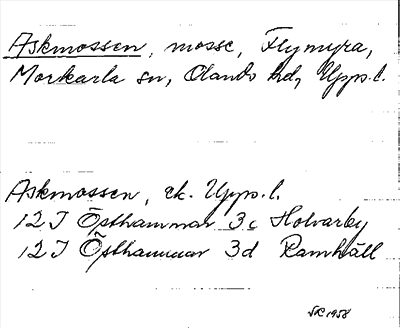 Askmossen, mosse, Flymyra,
Morkarla sn, Olands hd, Upps.l.
Askmossen, ek. Upps.l.
12I Östhammar 3c Holvarby
12I Östhammar 3d Ramhäll
1958